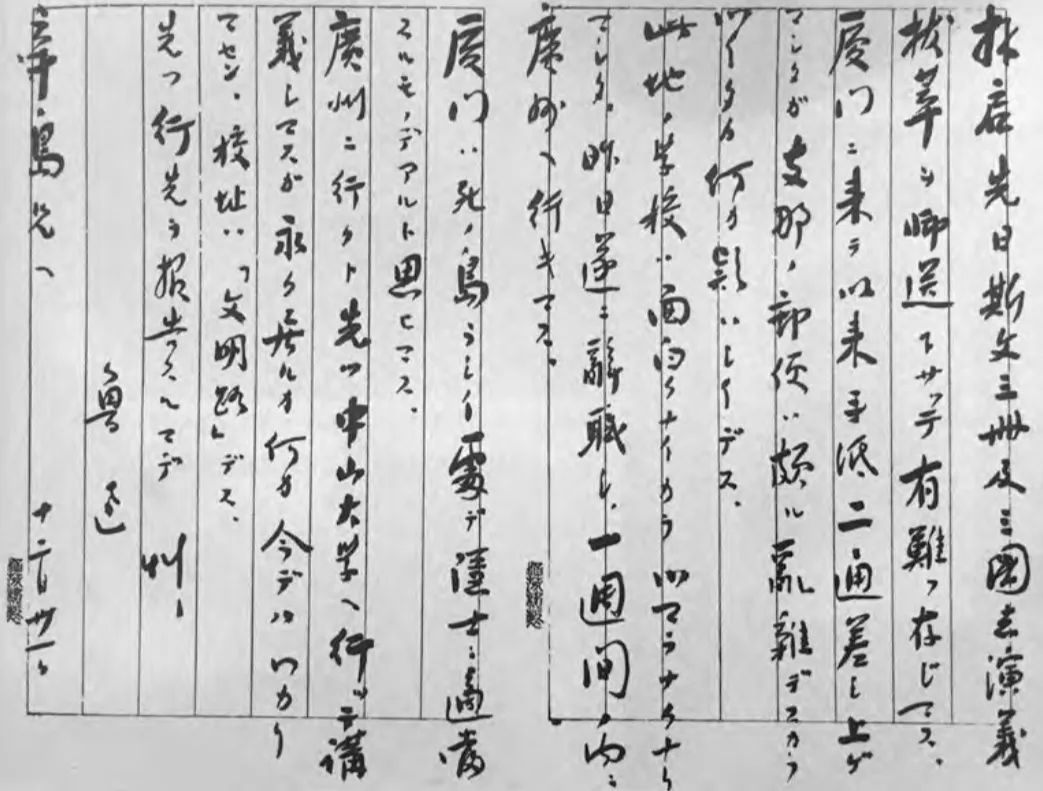 拝啓 先日斯文三冊及三國志演義
抜萃ヲ御送下サッテ有難ク存じマス、
厦門ニ来テ以来手紙二通差し上ゲ
マシタガ支那ノ郵便ハ頗ル亂雑デスカラ
何カ影ハシイデス、
此地ノ学校ハ面白クナイカラ ツマラナクナリ
マシタ、昨日遂ニ辭職し、一週間ノ内ニ
廣州ヘ行キマス。
厦門ハ死ノ島ラシイ處デ隱士ニ適當
スルモノデアルト思ヒマス、
廣州ニ行クト先ツ中山大学ヘ行ッテ講
義しマスガ永ク居ルカ何カ今デハワカリ
マセン、校址ハ「文明路」デス、
先ツ行先ヲ報告スルマデ 艸々
魯迅
辛島兄ヘ 十二月卅一日